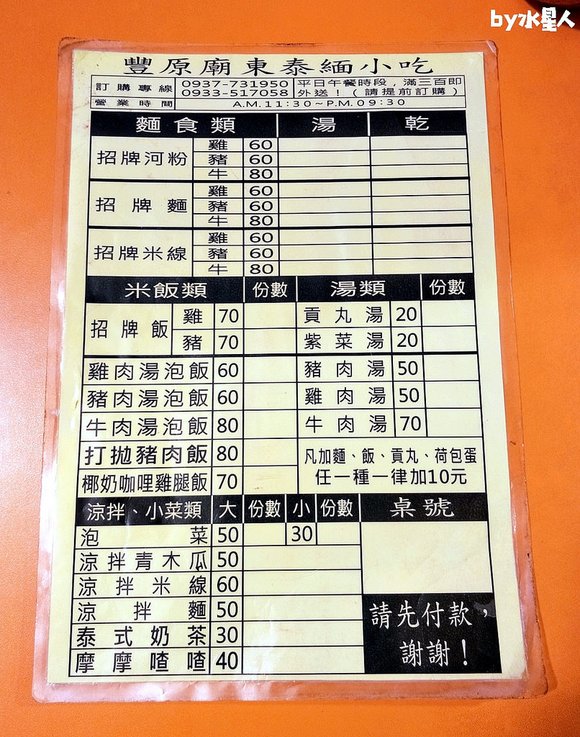 by水星人
豐原廟東泰緬小吃
訂購專線 0937-731950 平日午餐時段，滿三百即
0933-517058 外送！（請提前訂購）
營業時間 A.M.11:30~P.M.09:30
麵食類 湯 乾
招牌河粉 雞 60
豬 60
牛 80
招牌麵 雞 60
豬 60
牛 80
招牌米線 雞 60
豬 60
牛 80
米飯類 份數 湯類 份數
招牌飯 雞 70 貢丸湯 20
豬 70 紫菜湯 20
雞肉湯泡飯 60 豬肉湯 50
豬肉湯泡飯 60 雞肉湯 50
牛肉湯泡飯 80 牛肉湯 70
打拋豬肉飯 80 凡加麵、飯、貢丸、荷包蛋
椰奶咖哩雞腿飯 70 任一種一律加10元
涼拌、小菜類 大 份數 小 份數 桌號
泡菜 50 30
涼拌青木瓜 50
涼拌米線 60
涼拌麵 50
泰式奶茶 30
摩摩喳喳 40
請先付款，
謝謝！